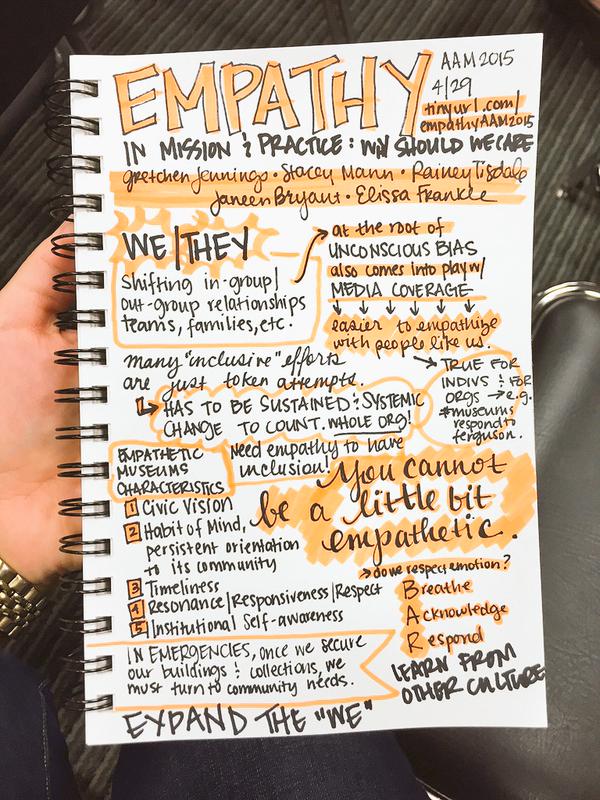 EMPATHY
AAM 2015
4/29
tinyurl.com/
empathyAAM2015
IN MISSION & PRACTICE: WHY SHOULD WE CARE
gretchen jennings • Stacey Mann • Rainey Tisdale
Janeen Bryant • Elissa Frankle
WE/THEY
Shifting in-group/
out-group relationships
teams, families, etc.
at the root of
UNCONSCIOUS BIAS
also comes into play w/
MEDIA COVERAGE
easier to empathize
with people like us.
many "inclusive" efforts
are just token attempts.
HAS TO BE SUSTAINED & SYSTEMIC
CHANGE TO COUNT. WHOLE ORG!
TRUE FOR
INDIVS & FOR
ORGS → e.g.
#museums
respond to
ferguson.
Need empathy to have
inclusion!
EMPATHETIC
MUSEUMS
CHARACTERISTICS
1 Civic Vision
2 Habit of Mind,
persistent orientation
to its community
3 Timeliness
4 Resonance/Responsiveness/Respect
5 Institutional Self-awareness
you cannot
be a little bit
empathetic.
→ do we respect emotion?
Breathe
Acknowledge
Respond
IN EMERGENCIES, once we secure
our buildings & collections, we
must turn to community needs.
LEARN FROM
OTHER CULTURE
EXPAND THE "WE"